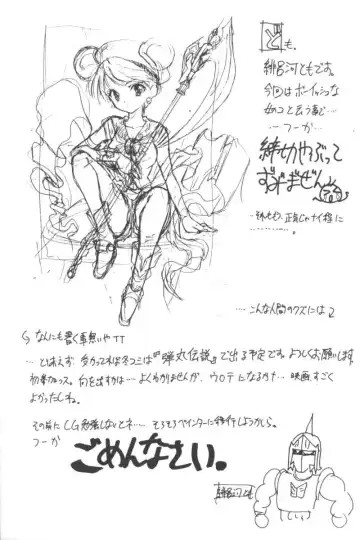 ども。
緋呂河ともです。
今回はボーイッシュな
女のコと言う事で…
…つーか…
締切やぶって
すいませぜん
…それももう、正気じゃナイ程に
…………。
……こんな人間のクズには
なんにも書く事無いや TT
…とりあえず、受かってれば冬コミは『弾丸伝説』で出る予定です。よろしくお願いします。
初参加っス。何を出すかは……よくわかりませんが、
映画すごく
よかったしね。
その前にCG勉強しないとネ……そろそろペインターに移行しようかしら。
つーか
ごめんなさい。
緋呂河とも